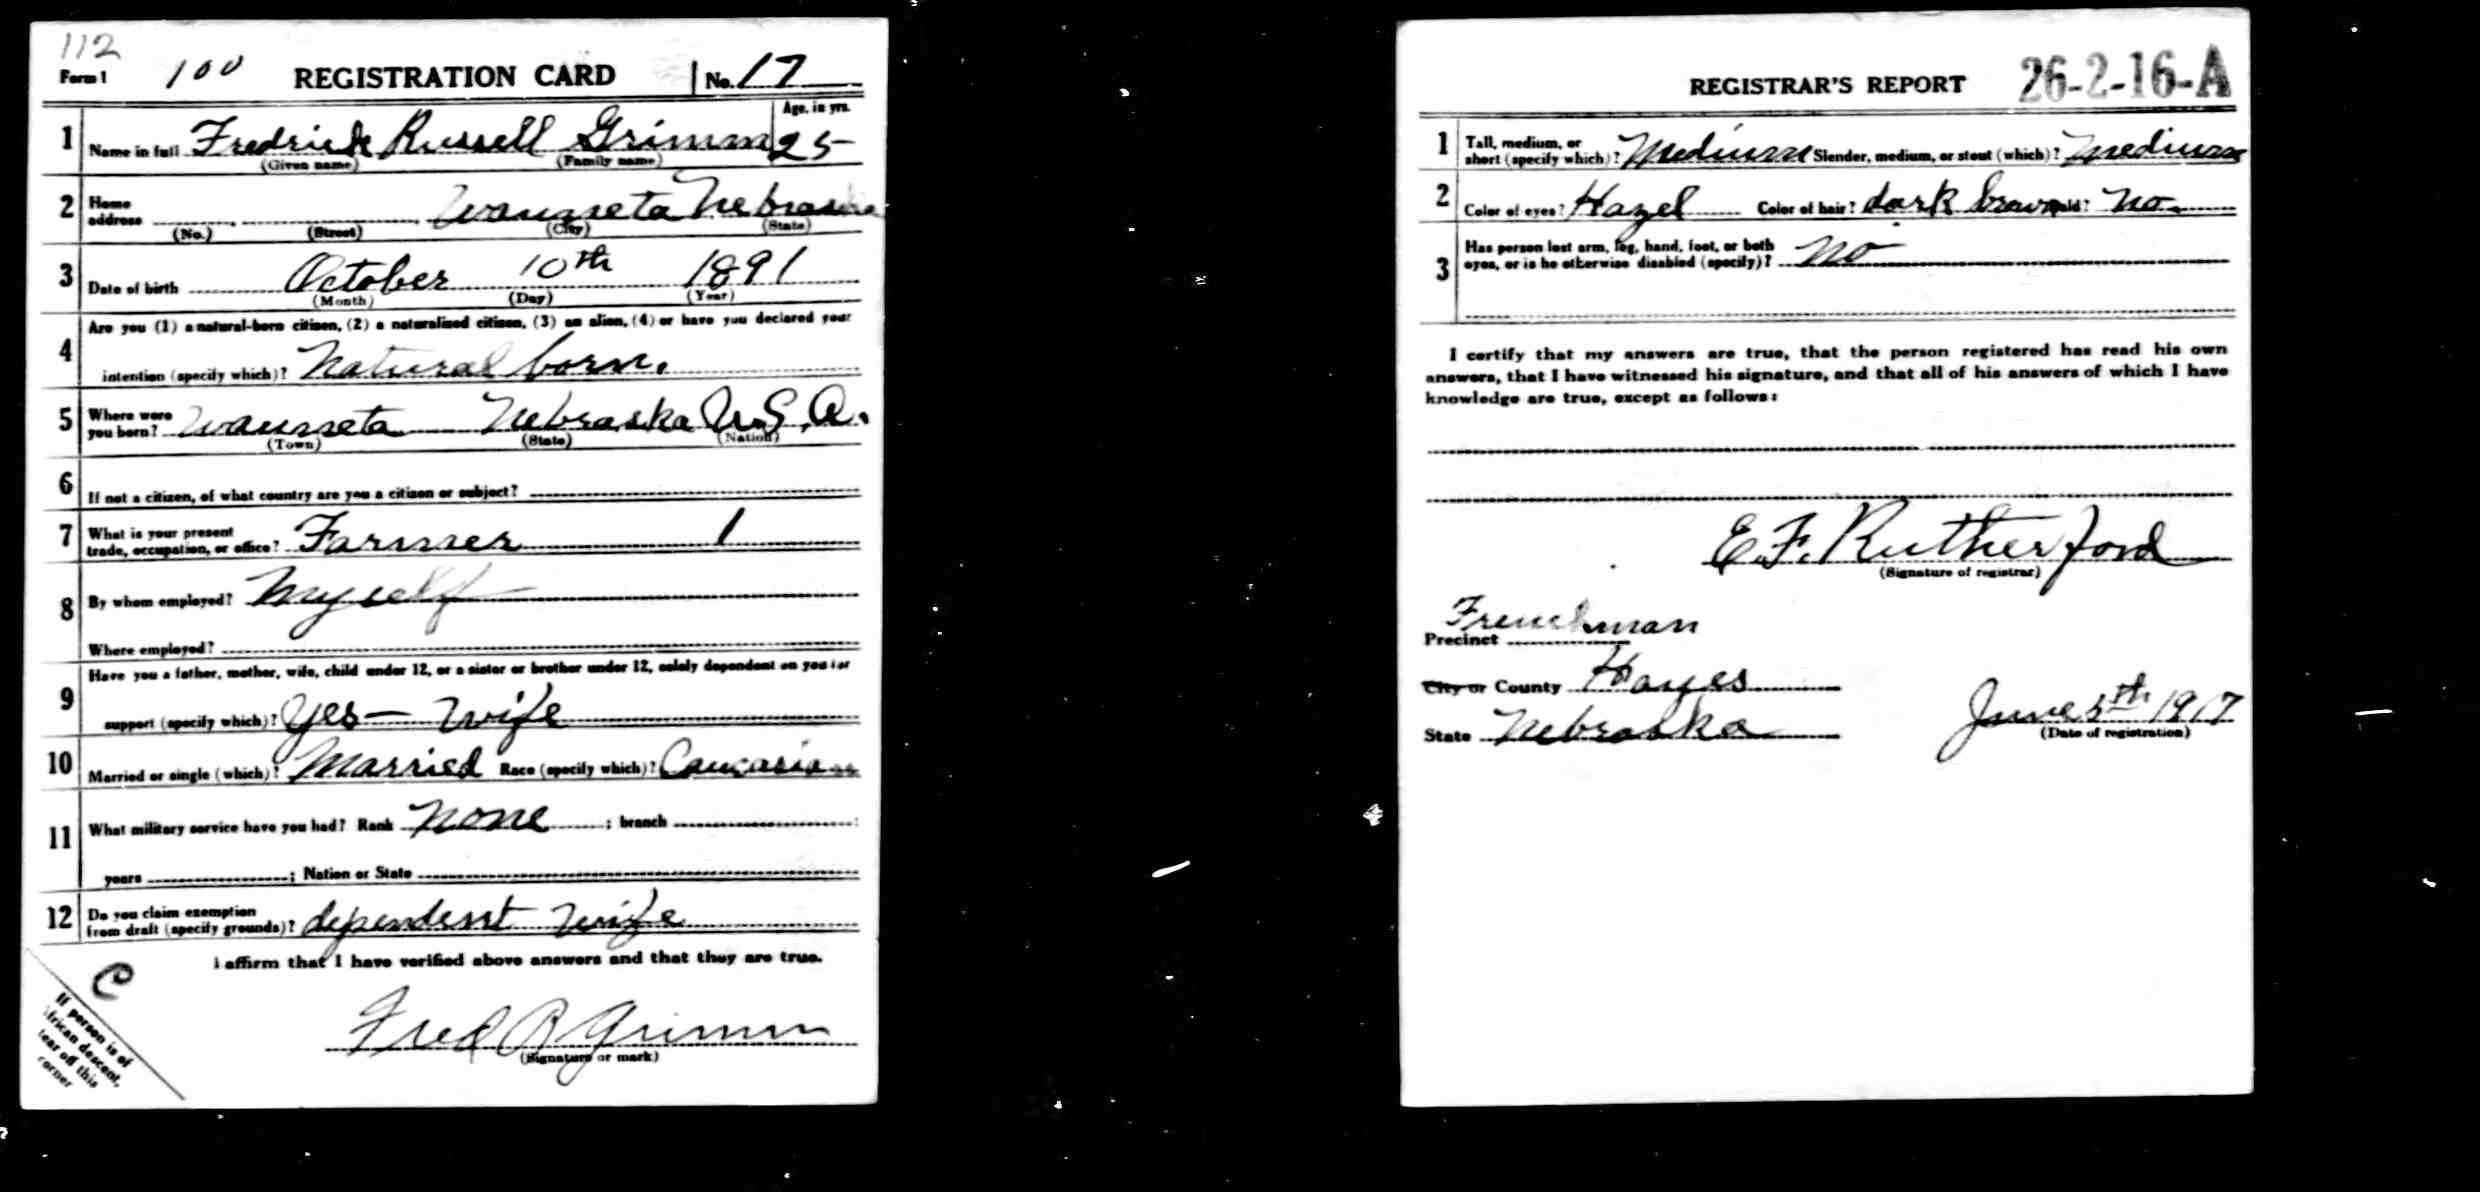 112
Form 1 100 REGISTRATION CARD No. 17
1 Name in full Fredrick Russell Grimm Age, in yrs. 25
(Given name) (Family name)
2 Home address Wauneta Nebraska
(No.) (Street) (City) (State)
3 Date of birth October 10th 1891
(Month) (Day) (Year)
4 Are you (1) a natural-born citizen, (2) a naturalized citizen, (3) an alien, (4) or have you declared your
intention (specify which)? Natural born.
5 Where were you born? Wauneta Nebraska U.S.A.
(Town) (State) (Nation)
6 If not a citizen, of what country are you a citizen or subject?
7 What is your present trade, occupation, or office? Farmer 1
8 By whom employed? Myself
Where employed?
9 Have you a father, mother, wife, child under 12, or a sister or brother under 12, solely dependent on you for
support (specify which)? Yes — Wife
10 Married or single (which)? Married Race (specify which)? Caucasian
11 What military service have you had? Rank None ; branch
years ; Nation or State
12 Do you claim exemption from draft (specify grounds)? dependent Wife
I affirm that I have verified above answers and that they are true.
C
Fred R Grimm
(Signature or mark)
If person is of
African descent,
tear off this
corner
REGISTRAR'S REPORT 26-2-16-A
1 Tall, medium, or short (specify which)? Medium Slender, medium, or stout (which)? Medium
2 Color of eyes? Hazel Color of hair? dark brown Bald? No.
3 Has person lost arm, leg, hand, foot, or both eyes, or is he otherwise disabled (specify)? No
I certify that my answers are true, that the person registered has read his own
answers, that I have witnessed his signature, and that all of his answers of which I have
knowledge are true, except as follows:
E. F. Rutherford
(Signature of registrar)
Precinct Frenchman
City or County Hayes
State Nebraska June 5th 1917
(Date of registration)